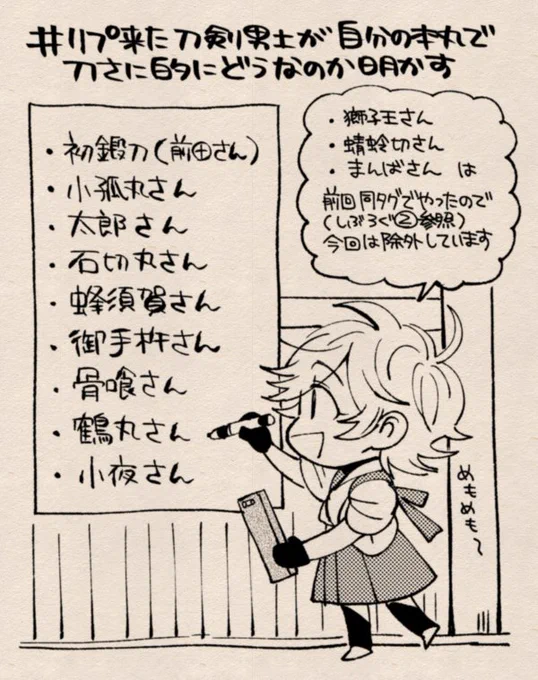 #リプ来た刀剣男士が自分の本丸で
刀さに的にどうなのか明かす
・初鍛刀(前田さん)
・小狐丸さん
・太郎さん
・石切丸さん
・蜂須賀さん
・御手杵さん
・骨喰さん
・鶴丸さん
・小夜さん
・獅子王さん
・蜻蛉切さん
・まんばさん は
前回同タグでやったので
(しぶろぐ②参照)
今回は除外しています
めもめも~